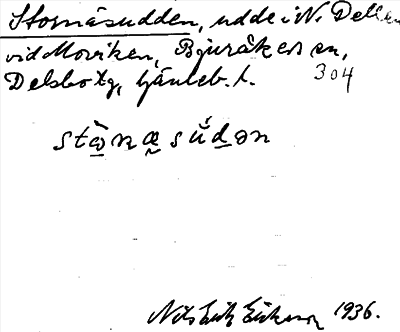 Stornäsudden, udde i N. Dellen
vid Moviken, Bjuråkers sn,
Delsbo tg, Gävleb. l.
304
stɷ̀næsúdən
Nils Erik Eriksson 1936.